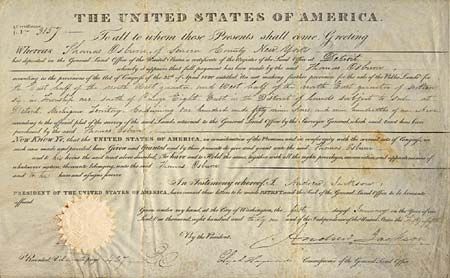 THE UNITED STATES OF AMERICA.
Certificate
No. 3157
To all to whom these Presents shall come, Greeting
WHEREAS Thomas Osburn, of Seneca County New York
has deposited in the General Land Office of the United States, a certificate of the Register of the Land Office at Detroit
whereby it appears that full payment has been made by the said Thomas Osburn
according to the provisions of the Act of Congress of the 24th of April 1820 entitled An act making further provision for the sale of the Public Lands for
the East half of the north West quarter and West half of the North East quarter of section
six in Township six south of Range Eight East in the District of Lands subject to sale at
Detroit Michigan Territory, Containing one hundred and fifty nine hundredths of an acre
according to the official plat of the survey of the said Lands, returned to the General Land Office by the Surveyor General which said tract has been
purchased by the said Thomas Osburn
NOW KNOW YE, that the UNITED STATES OF AMERICA, in consideration of the Premises and in conformity with the several acts of Congress, in
such case made and provided, Have Given and Granted and by these presents do give and grant unto the said Thomas Osburn
and to his heirs the said tract above described, To have and to Hold the same, together with all the rights, privileges, immunities, and appurtenances of
whatsoever nature, thereunto belonging, unto the said Thomas Osburn
and to his heirs and assigns forever
In Testimony whereof, I, Andrew Jackson
PRESIDENT OF THE UNITED STATES OF AMERICA, have caused these Letters to be made PATENT and the Seal of the General Land Office to be hereunto
affixed
Given under my hand at the City of Washington, the day of January in the Year of our
Lord One thousand, eight hundred and thirty one and of the Independence of the United States the Fifty fifth
By the President, Andrew Jackson
Commissioner of the General Land Office